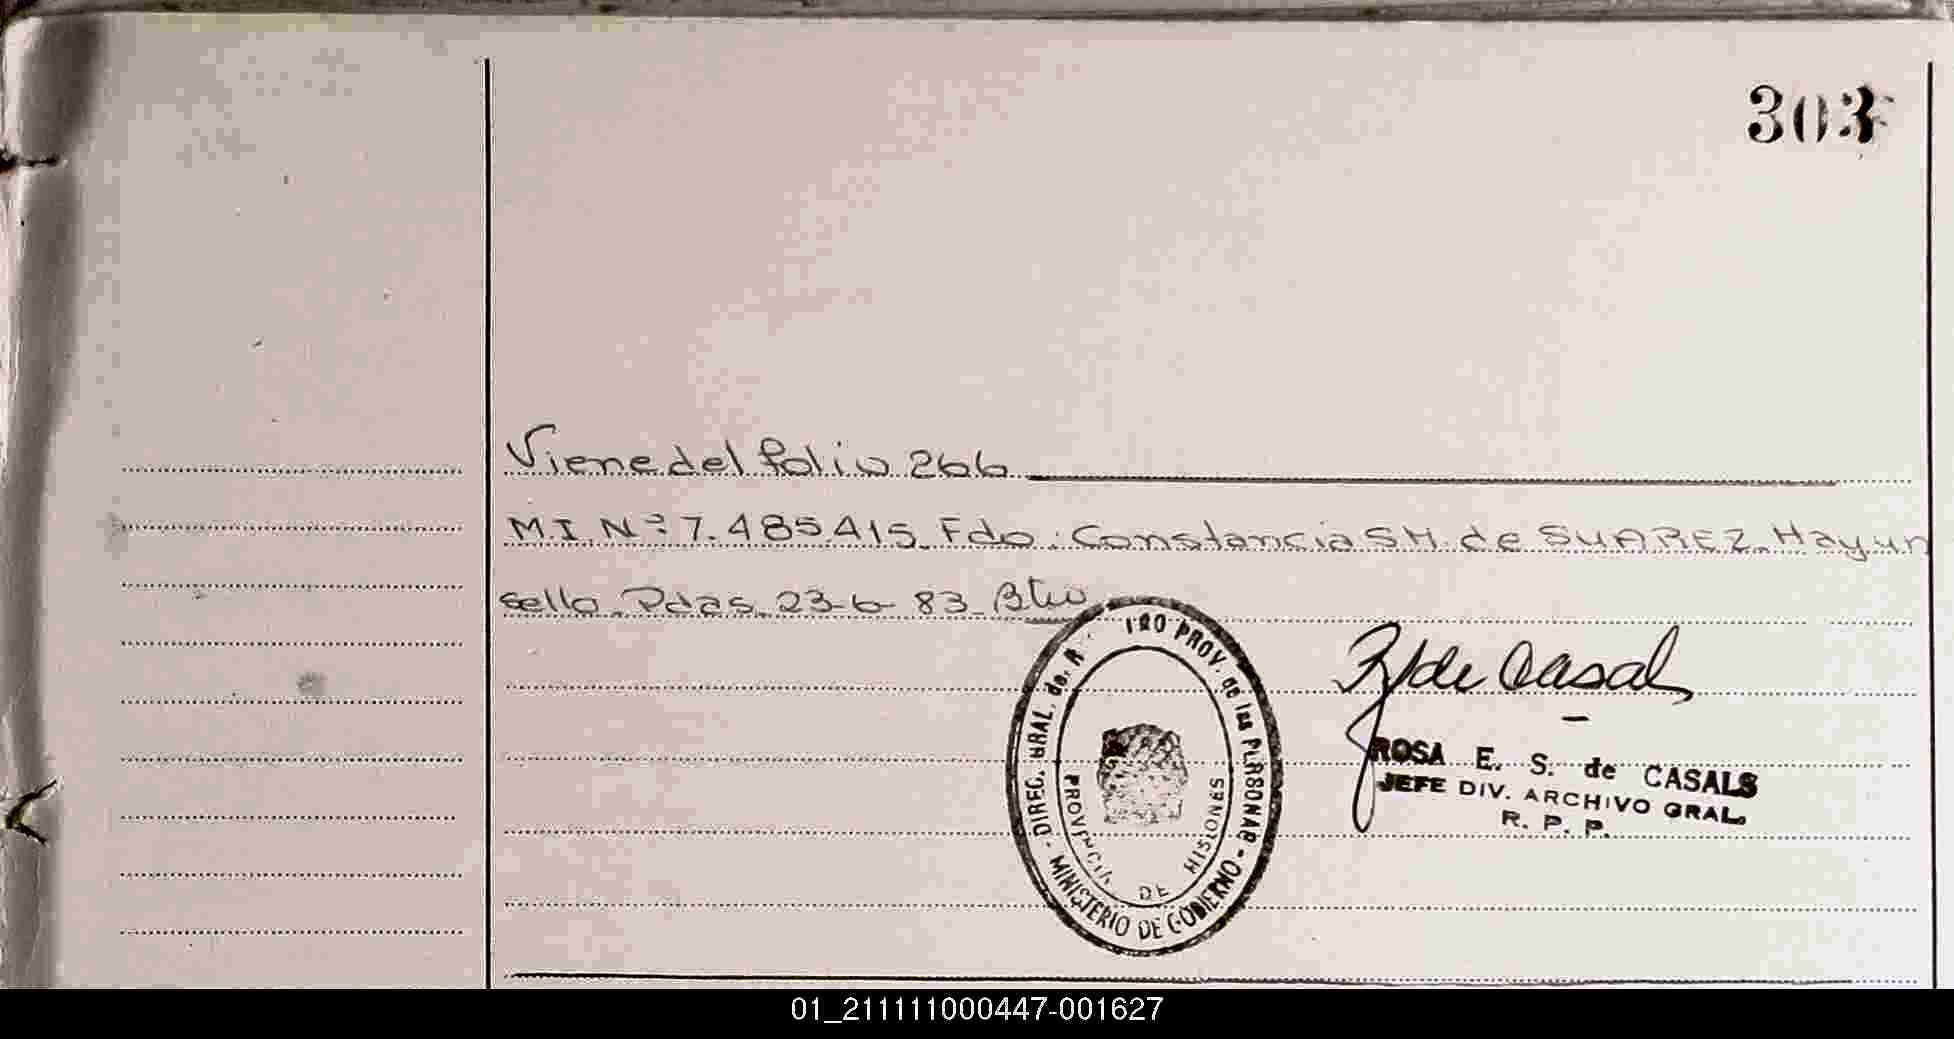 303
Viene del folio 266
M.I. Nº: 7.485.415. Fdo: Constancia S.H. de SUAREZ. Hay un
sello. Pdas. 23-6-83.
DIREC. GRAL. de PROV. de las PERSONAS - MINISTERIO DE GOBIERNO -
PROVINCIA DE MISIONES
R de Casals
ROSA E. S. de CASALS
JEFE DIV. ARCHIVO GRAL.
R. P. P.
01_211111000447-001627